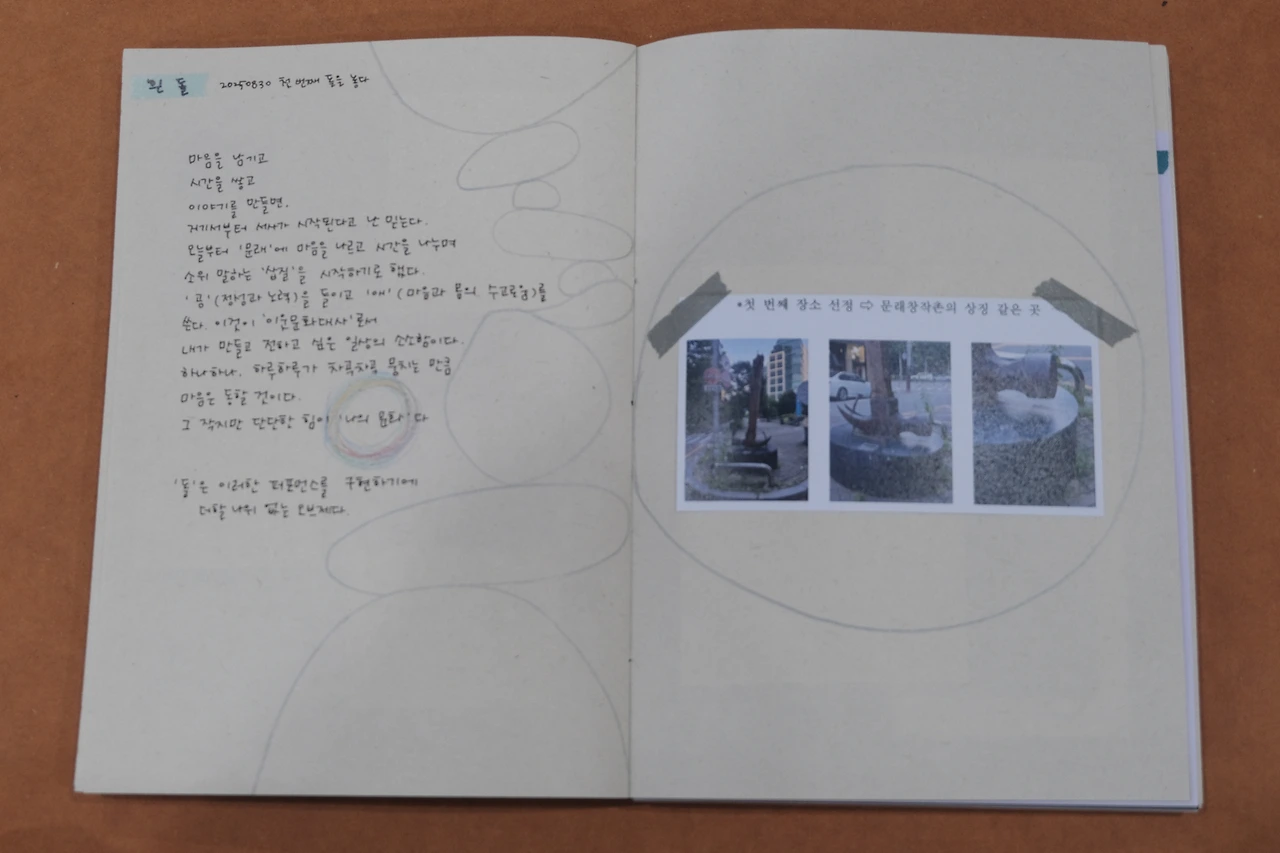 흰 돌
20250830 첫 번째 돌을 놓다
마음을 남기고
시간을 쌓고
이야기를 만들면,
거기서부터 서사가 시작된다고 난 믿는다.
오늘부터 '문래'에 마음을 나르고 시간을 나누며
소위 말하는 '삽질'을 시작하기로 했다.
'공'(정성과 노력)을 들이고 '애'(마음과 몸의 수고로움)를
쓴다. 이것이 '이웃문화대사'로서
내가 만들고 전하고 싶은 일상의 소소함이다.
하나하나, 하루하루가 차곡차곡 뭉치는 만큼
마음은 동할 것이다.
그 작지만 단단한 힘이 '나의 문화'다
'돌'은 이러한 퍼포먼스를 구현하기에
더할 나위 없는 오브제다.
*첫 번째 장소 선정 ⇨ 문래창작촌의 상징 같은 곳